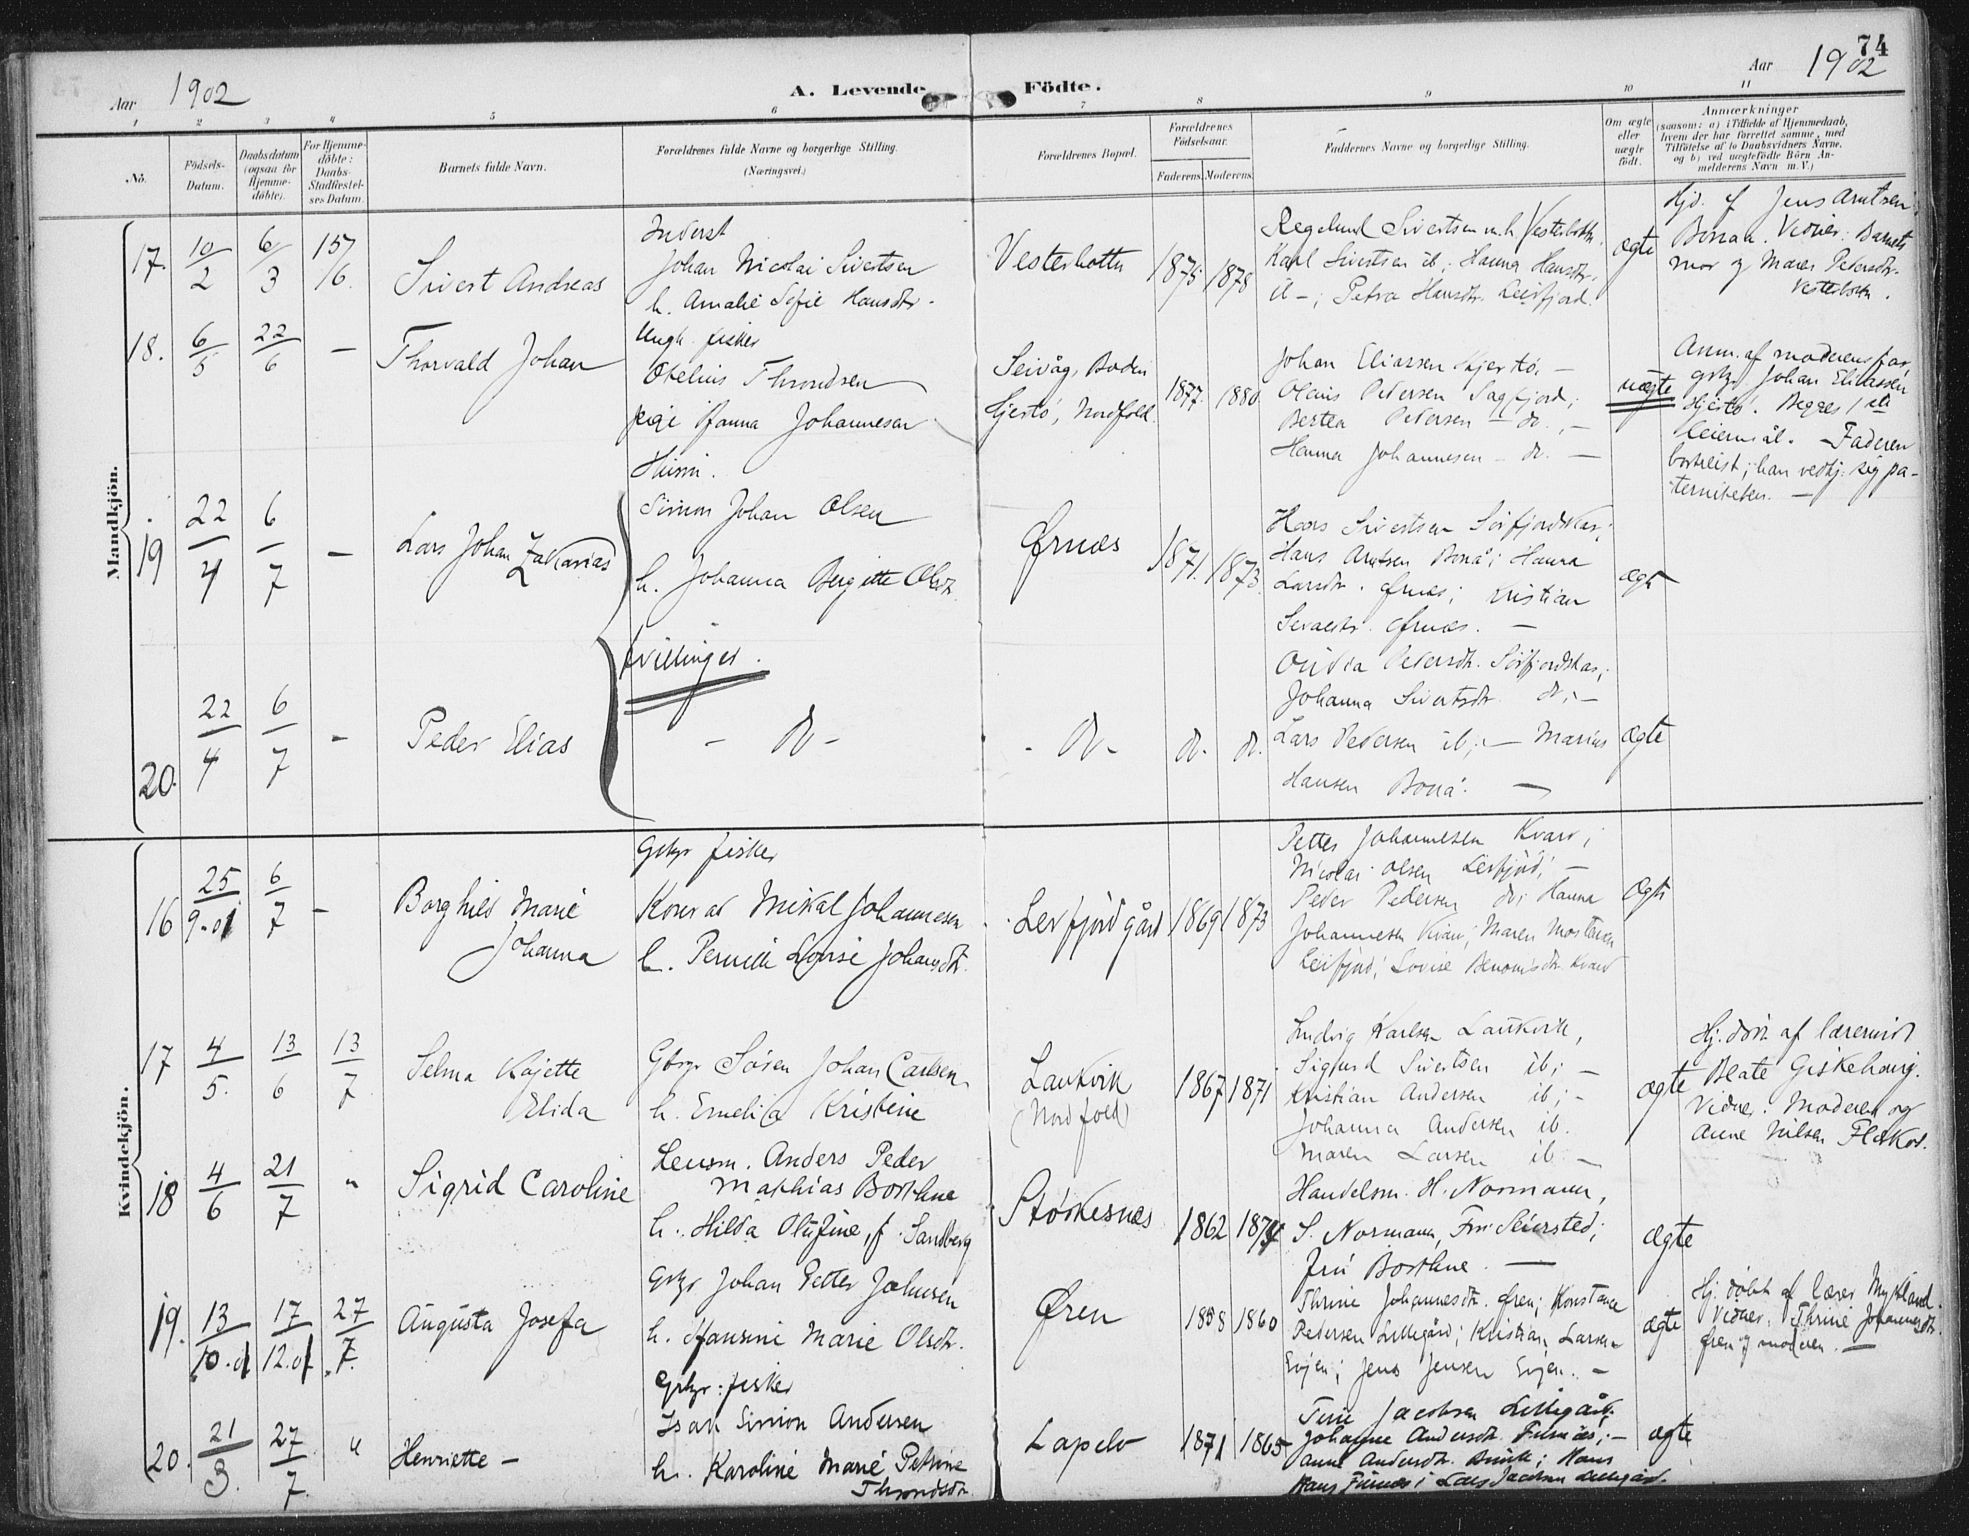 74
Aar 1902
A. Levende Födte.
Aar 1902
1 2 3 4 5 6 7 8 9 10 11
No.
Födsels-Datum.
Daabsdatum (ogsaa for Hjemme-döbte).
For Hjemme-döbte: Daabs-Stadfæstel-ses Datum.
Barnets fulde Navn.
Forældrenes fulde Navne og borgerlige Stilling.
(Næringsvei.)
Forældrenes Bopæl.
Forældrenes Födselsaar.
Faderens. Moderens.
Faddernes Navne og borgerlige Stilling.
Om ægte eller uægte födt.
Anmærkninger
(saasom: a) i Tilfælde af Hjemmedaab,
hvem der har forrettet samme, med
Tilföielse af to Daabsvidners Navne,
og b) ved uægtefödte Börn An-
melderens Navn m. V.)
Mandkjön.
17. 10/2 6/3 15/6.
Sivert Andreas
Inderst
Johan Nicolai Sivertsen
h. Amalie Sofie Hansdtr.
Vesterbotn
1875 1878
Karl Sivertsen ib; Hanna Hansdtr.
ib -; Petra Hansdtr. Leirfjord.
ægte
Hjd. af Jens Arntsen
Bonaa. Vidner: Barnets
mor og Maren Pedersdtr.
Vesterbotn.
18. 6/5 22/6 -
Thorvald Johan
Ungk. fisker
Obelius Throndsen
pige Hanna Johannesen
Seivåg, Bodin
Hjertö, Nordfold.
1877. 1880
Johan Eliassen Hjertö, -
Olaus Pedersen Sagfjord;
Bertea Pedersen - do., -
Hanna Johannesen - do. -
uægte
Anm. af moderens far,
grbr Johan Eliassen
Hjertö. Begges 1ste
leiermål. - Faderen
bortreist; han vedkj. sig pa-
terniteten. -
19 22/4 6/7 -
Lars Johan Zakarias
Husm.
Simon Johan Olsen
h. Johanna Bergitte Olsdtr.
Ørnæs
1871. 1873.
Hans Sivertsen Sörfjordskar;
Hans Arntsen Bonå; Hanna
Larsdtr. Ørnæs; Kristian
Ørnæs. -
ægte
tvillinger.
20. 22/4 6/7 -
Peder Elias
- do -
- do -
do. do.
Pedersdtr. Sörfjordskar;
Johanna Sivertsdtr. do. -
Lars Pedersen ib; - Marius
Hansen Bonå. -
ægte
Kvindekjön.
16 25/9-01 6/7 -
Borghild Marie
Johanna
Grbr fisker
Konrad Mikal Johannesen
h. Pernille Lovise Johansdtr.
Leirfjordgård
1869 1873
Petter Johannesen Kvarv;
Nicolai Olsen Leirfjord; -
Peder Pedersen do; Hanna
Johannesen Kvarv; Maren
Leirfjord; Lovise Kvarv
ægte
17 4/5. 13/6 13/7
Selma Kajette
Elida
Gbr Sören Johan Carlsen
h. Emelia Kristine
Laukvik
(Nordfold)
1867 1871
Ludvig Karlsen Laukvik,
Sigurd Sivertsen ib; -
Kristian Andersen ib; -
Johanna Andersen ib.
Maren Larsen ib. -
ægte
Hj. döbt af lærerinde
Beate Giskehaug.
Vidner: Moderen og
Anne Nilsen Flakos.
18 4/6 21/7 "
Sigrid Caroline
Lensm. Anders Peder
Mathias Borthne
h. Hilda Olufine, f. Sandberg
Storkesnæs
1862 1874
Handelsm. H. Normann,
S. Normann, Fru Seiersted;
fru Borthne. -
ægte
19. 13/10-01 17/12.01 27/7.
Augusta Josefa
Grbr Johan Petter Johnsen
h. Hansine Marie Olsdtr.
Øren
1858 1860
Thrine Johannesdtr. Øren; Konstance
Pedersen Lillegård; Kristian Larsen
Evjen; Jens Jensen Evjen. -
ægte
Hj. döbt af lærer Mykland.
Vidner: Thrine Johannesdtr.
Øren og moderen. -
20. 21/3. 27/7. "
Henriette -
Grbr: fisker
Isak Simon Andersen
h. Karoline Marie Petrine
Throndsdtr.
Lapelv
1871 1865
Jacobsen Lillegård;
Johanne Andersdtr. Furnæs; -
Anne Andersdtr. Hans
Hans Furnæs; Lars Jacobsen Lillegård.
ægte